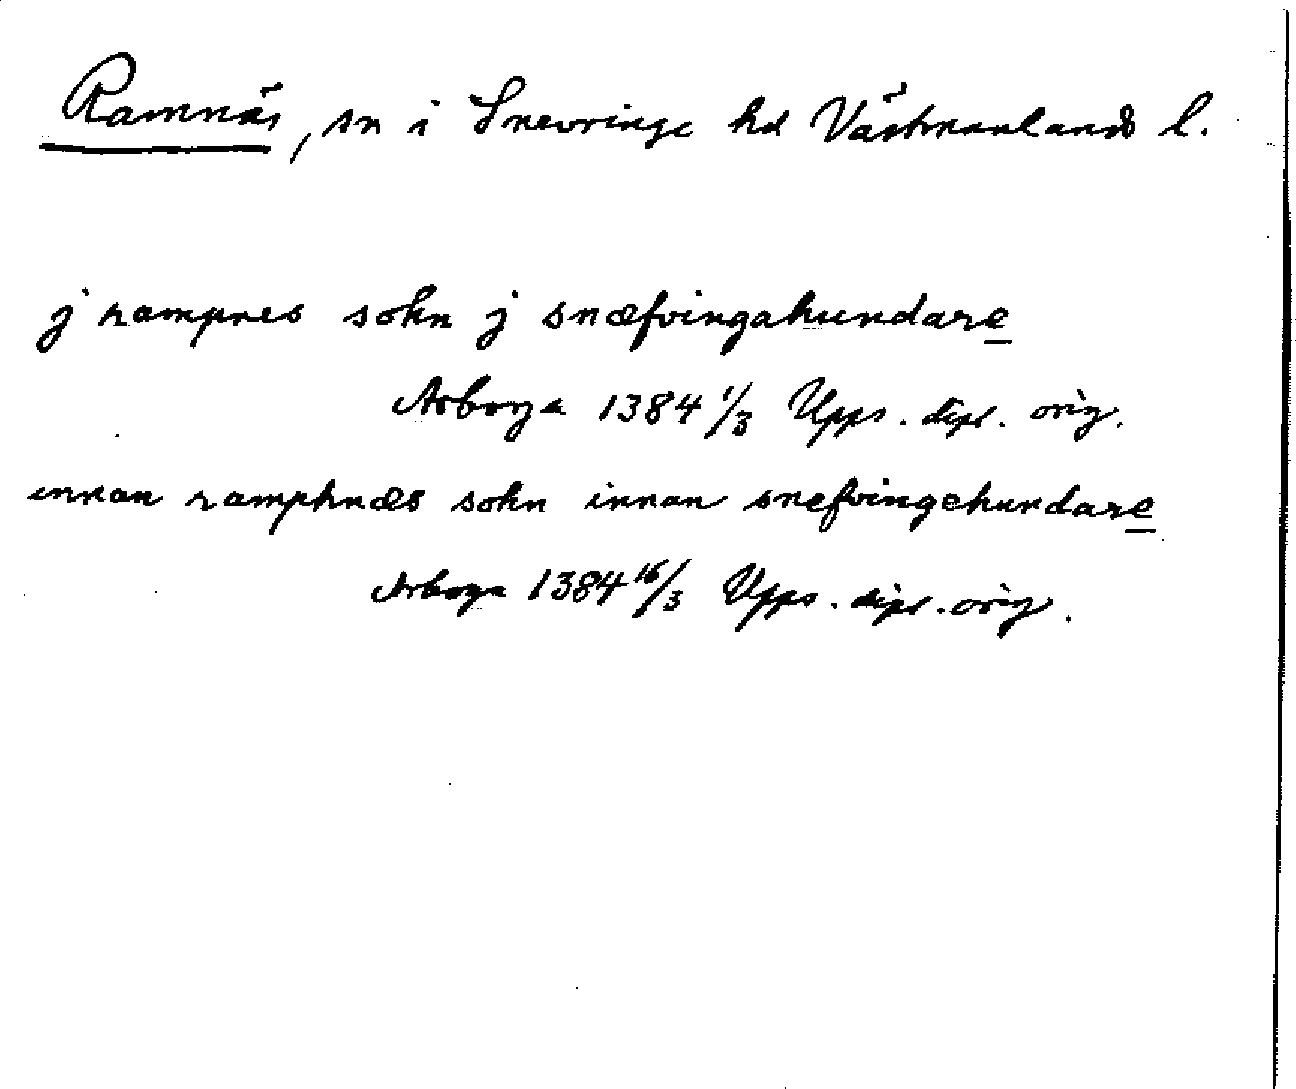 Ramnäs, sn i Snevringe hd Västmanlands l.
j rampnes sokn j snæfvingahundare
Arboga 1384 1/3 Upps. dipl. orig.
innan ramphnæs sokn innan snefvingehundare
Arboga 1384 16/3 Upps. dipl. orig.